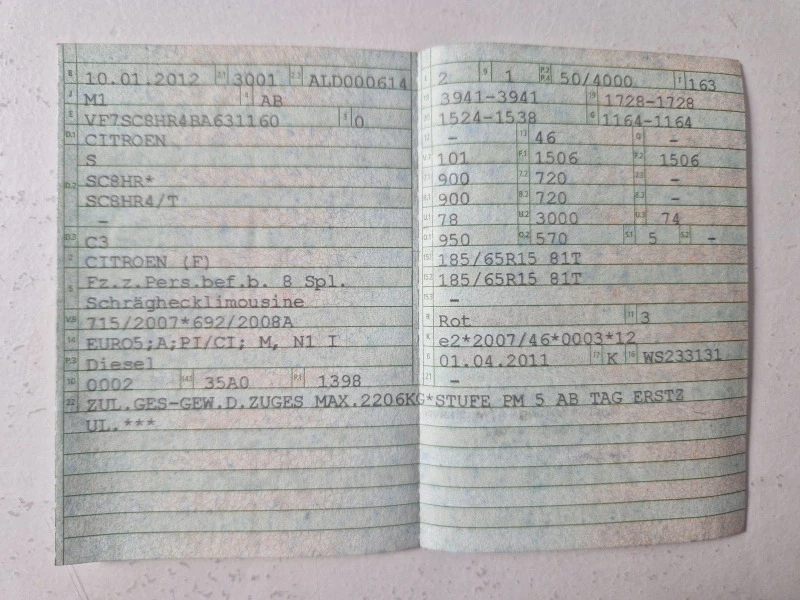 B 10.01.2012 2.1 3001 2.2 ALD000614
J M1 4 AB
E VF7SC8HR4BA631160 3 0
D.1 CITROEN
S
D.2 SC8HR*
SC8HR4/T
-
D.3 C3
2 CITROEN (F)
5 Fz.z.Pers.bef.b. 8 Spl.
Schräghecklimousine
V.9 715/2007*692/2008A
14 EURO5;A;PI/CI; M, N1 I
P.3 Diesel
10 0002 14.1 35A0 P.1 1398
22 ZUL.GES-GEW.D.ZUGES MAX.2206KG*STUFE PM 5 AB TAG ERSTZ
UL.***
L 2 9 1 P.2 P.4 50/4000 T 163
18 3941-3941 19 1728-1728
20 1524-1538 G 1164-1164
12 - 13 46 Q -
V.7 101 F.1 1506 F.2 1506
7.1 900 7.2 720 7.3 -
8.1 900 8.2 720 8.3 -
U.1 78 U.2 3000 U.3 74
O.1 950 O.2 570 S.1 5 S.2 -
15.1 185/65R15 81T
15.2 185/65R15 81T
15.3 -
R Rot 11 3
K e2*2007/46*0003*12
6 01.04.2011 17 K 16 WS233131
21 -